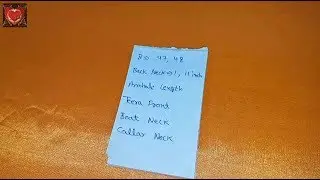 80 47, 48
Back Neck 9", 11 inch
Armhole Length
Tera
Boat Neck
Callar Neck